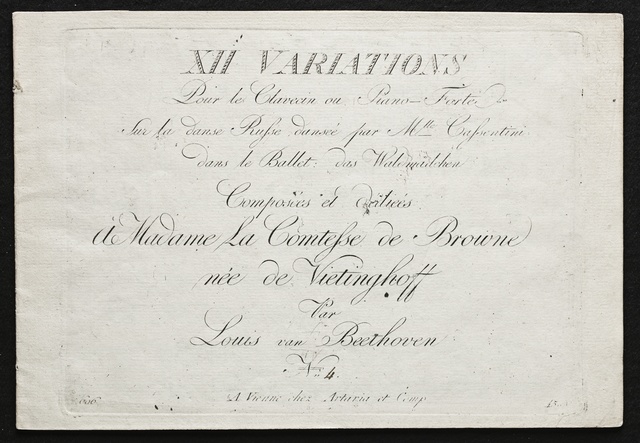 XII VARIATIONS
Pour le Clavecin ou Piano-Forté
Sur la danse Russe dansée par Mlle Cassentini
dans le Ballet: das Waldmädchen
Composées et dediées
à Madame La Comtesse de Browne
née de Vietinghoff
Par
Louis van Beethoven
No 4.
A Vienne chez Artaria et Comp